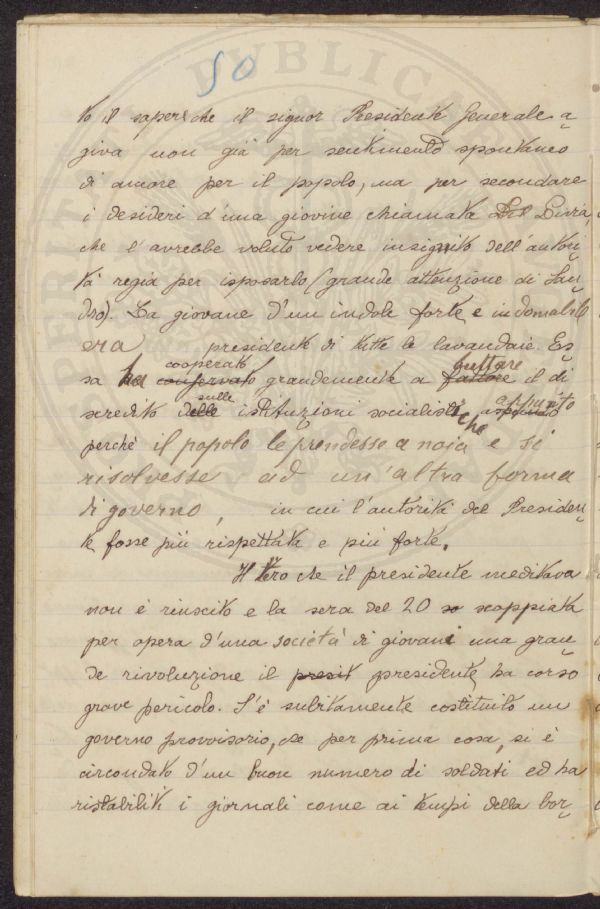 50
to il sapere che il signor Presidente Generale a
giva non già per sentimento spontaneo
di amore per il popolo, ma per secondare
i desideri d'una giovine chiamata
che l'avrebbe voluto vedere insignito dell'autori
tà regia per isposarlo (grande attenzione di San
dro). La giovane d'un indole forte e indomabile
era presidente di tutte le lavandaie. Es
cooperato buttare
sa ha conservato grandemente a fattore il di
sulle appunto
scredito delle istituzioni socialistiche
perchè il popolo le prendesse a noia e si
risolvesse ad un'altra forma
di governo, in cui l'autorità del Presiden
te fosse più rispettata e più forte.
Il tiro che il presidente meditava
non è riuscito e la sera del 20 so scoppiata
per opera d'una società di giovani una gran
de rivoluzione il presit presidente ha corso
grave pericolo. S'è subitamente costituito un
governo provvisorio, che per prima cosa, si è
circondato d'un buon numero di soldati ed ha
ristabiliti i giornali come ai tempi della bor